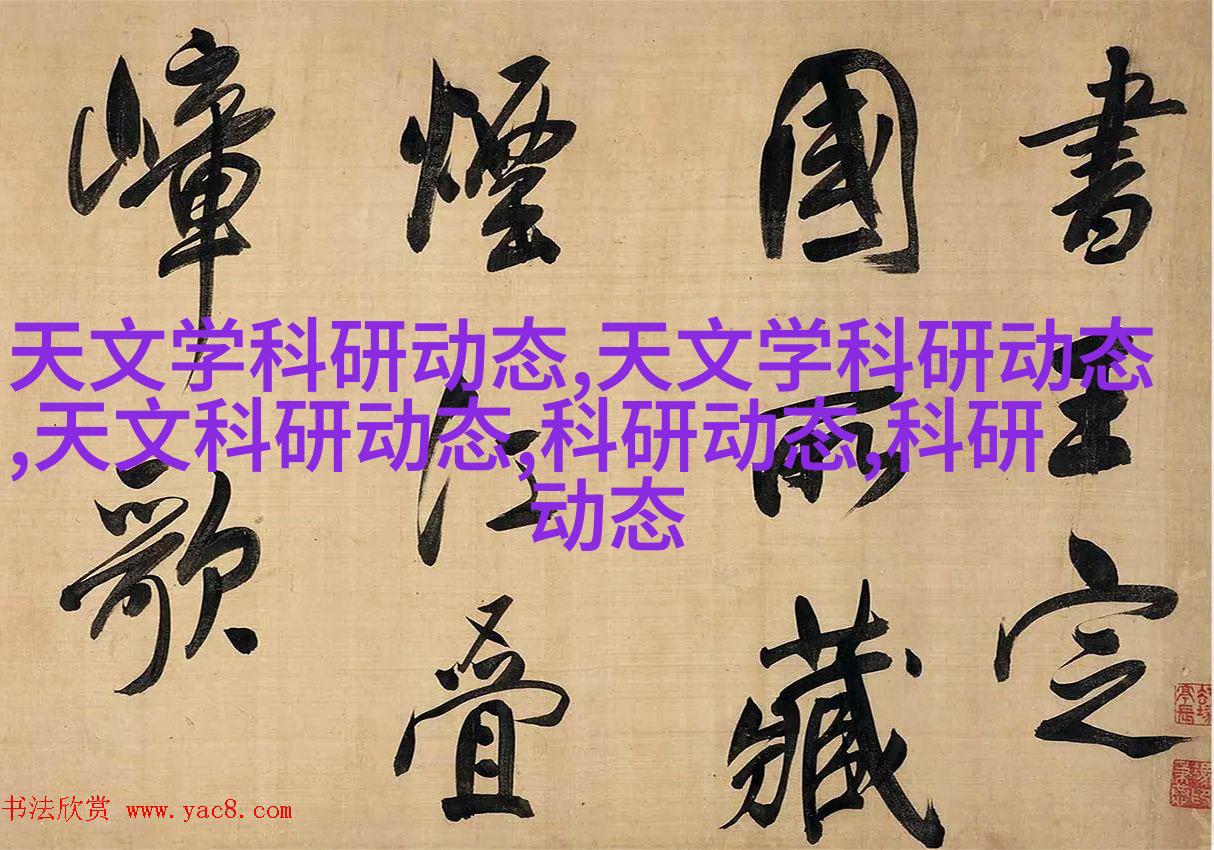 書王定
國所藏
煙江疊
嶂歌
天文学科研动态,天文学科研动态
,天文科研动态,科研动态,科研
动态
书法欣赏 www.yac8.com